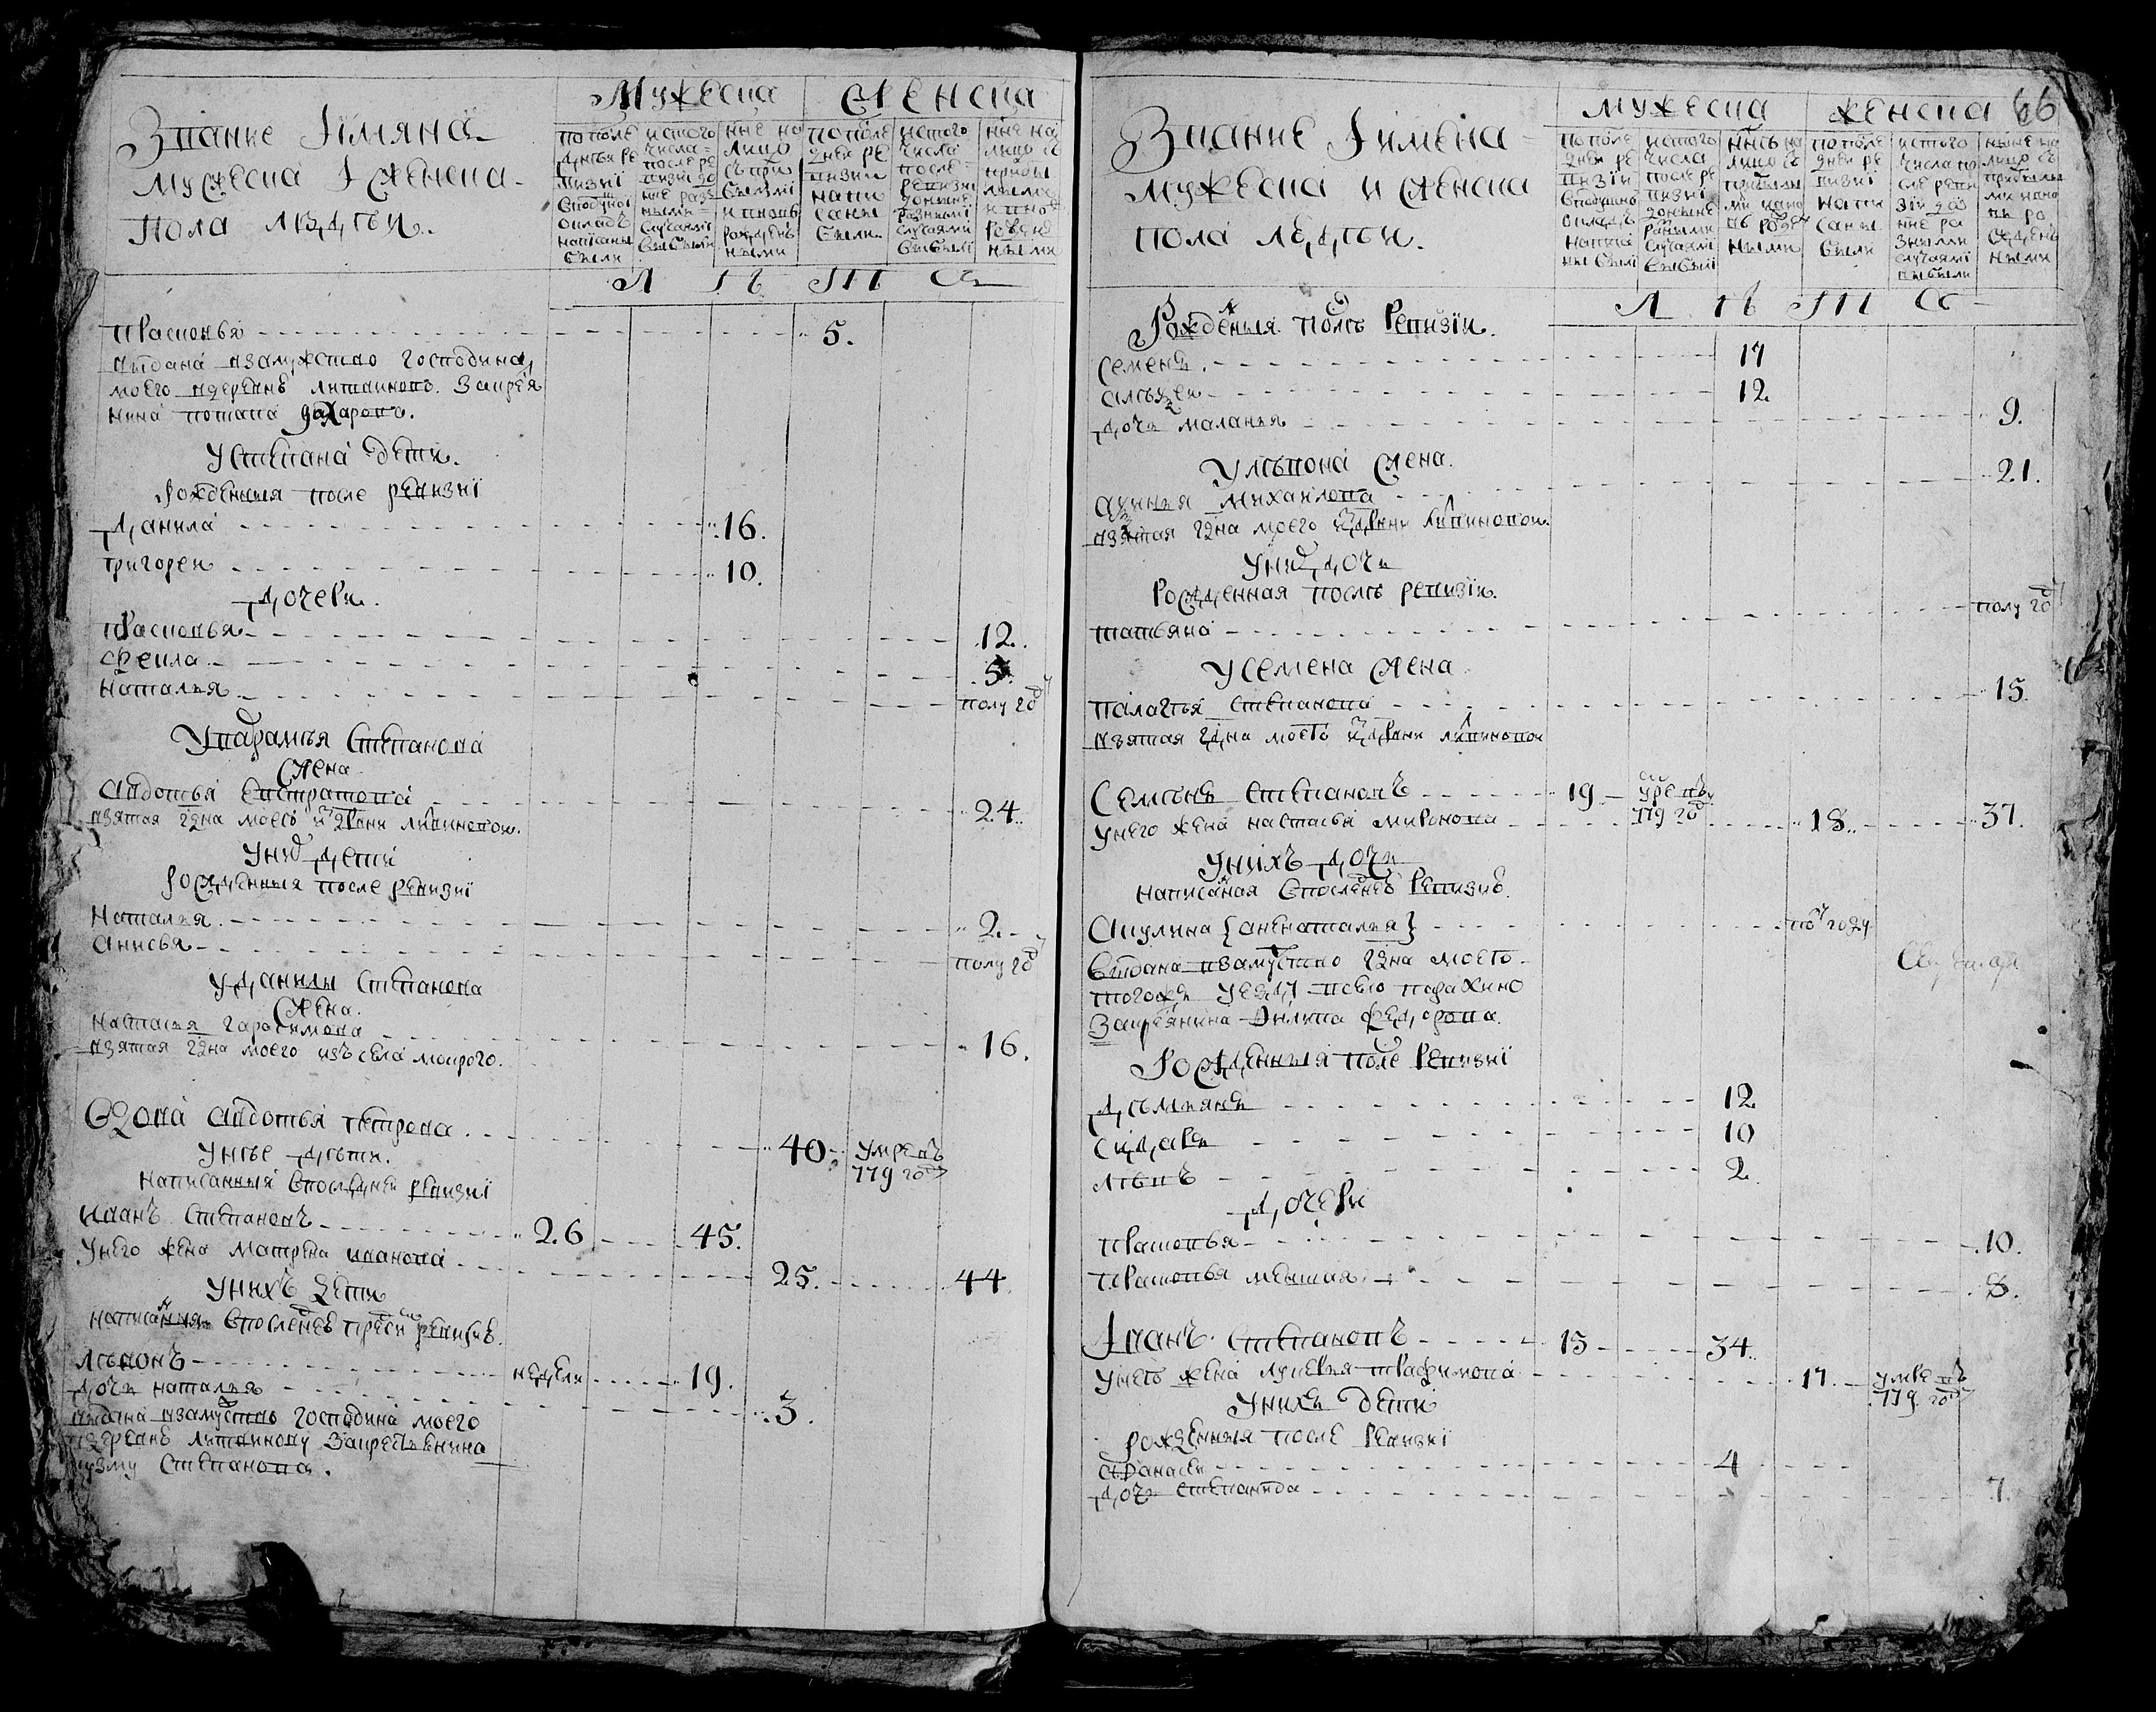 Звание Iимяна
мужеска I женска
пола людѣи.
Мужеска
женска
по после
днеи ре
визиі
вподушно
окладъ
написаны
были
ис того
числа
после ре
визиі до
ние раз
ными
случаями
выбыли
ние на
лицо
съ при
былыми
и вновь
рожден
ными
по после
днеи ре
визиі
напи
саны
были
ис того
числа
после
ревизиі
доныне
разными
случаями
выбыли
ние на
лицо съ
прибы
лыми
и вно
рожден
ными
Л Ѣ Т А
Прасковья 5.
выдана взамужство господина
моего вдеревнѣ литвиновъ. За кре
нина потапа захаровъ.
У Степана дети.
рожденыя после ревизиі
Данила 16.
григореи 10.
дочери.
Прасковья 12.
Фекла 5.
Наталья полу год
У варамья Степанова
жена
Авдотья Евстратова 24.
взятая гдна моего из дрвни литвиновои.
У них дети
рожденныя после ревизиі
Наталья. 2.
Анисья полу год
У данилы Степанова
жена.
Настасья гарасимова 16.
взятая гдна моего изъ села мокрого.
Вдова авдотья петрова. 40. умре въ
779 году
У нѣе дѣти.
Написанныя впоследнеи ревизиі
Иванъ Степановъ 26 45.
У него жена Матрена иванова 25. 44.
У нихъ дети
написаныя впоследнеѣ пред сию ревизиѣ.
Лѣвонъ недели 19.
дочь наталья 3.
выдана взамуство господина моего
вдеревнѣ литвинову за крестьенина
кузму Степанова.
66
Звание Iимена
мужеска и женска
пола людѣи.
мужеска
женска
по после
днеи ре
визиі
вподушно
окладъ
написа
ны были
ис того
числа
после ре
визиі
доныне
разными
случаями
выбыли
ныѣ на
лицо съ
прибылы
ми и вно
въ рожд
ными
по после
днеи ре
визиі
напи
саны
были
ис того
числа по
сле реви
зиі до
ние ра
зными
случаями
выбыли
ныне на
лицо съ
прибылы
ми и вно
въ ро
жден
ными
Л Ѣ Т А
Рожденыя послѣ Ревизіи.
Семенъ. 17
Алѣѯеи 12.
дочь маланья 9.
У лѣвона жена.
Акинья Михаилова 21.
взятая гдна моего из дрвни литвиновои.
У них дочь
Рожденная послѣ ревизіи.
татьяна полу год
У Семена жена
Палагѣя Степанова 15.
взятая гдна моего из дрвни литвиновои
Семѣнъ Степановъ 19 умре въ
779 год
У него жена настасья миронова 18. 37.
У нихъ дочь
написаная впоследнеѣ Ревизиѣ.
Акулина {ане наталья} полгоду
Выдана взамуство гдна моего
того жъ уезду всело парахино
За крстьянина Филипа федорова.
Рожденныя после Ревизиі
Дѣмьянъ 12.
Сидаръ 10
лѣвъ 2.
дочери
Прасковья 10.
Прасковья меншая 8.
Iванъ Степановъ 15 34.
У него жена лукерья трафимова 17. умре въ
779 году
У нихъ дети
рожденыя после Ревизиі
афанасеи 4
дочь степанида 7.